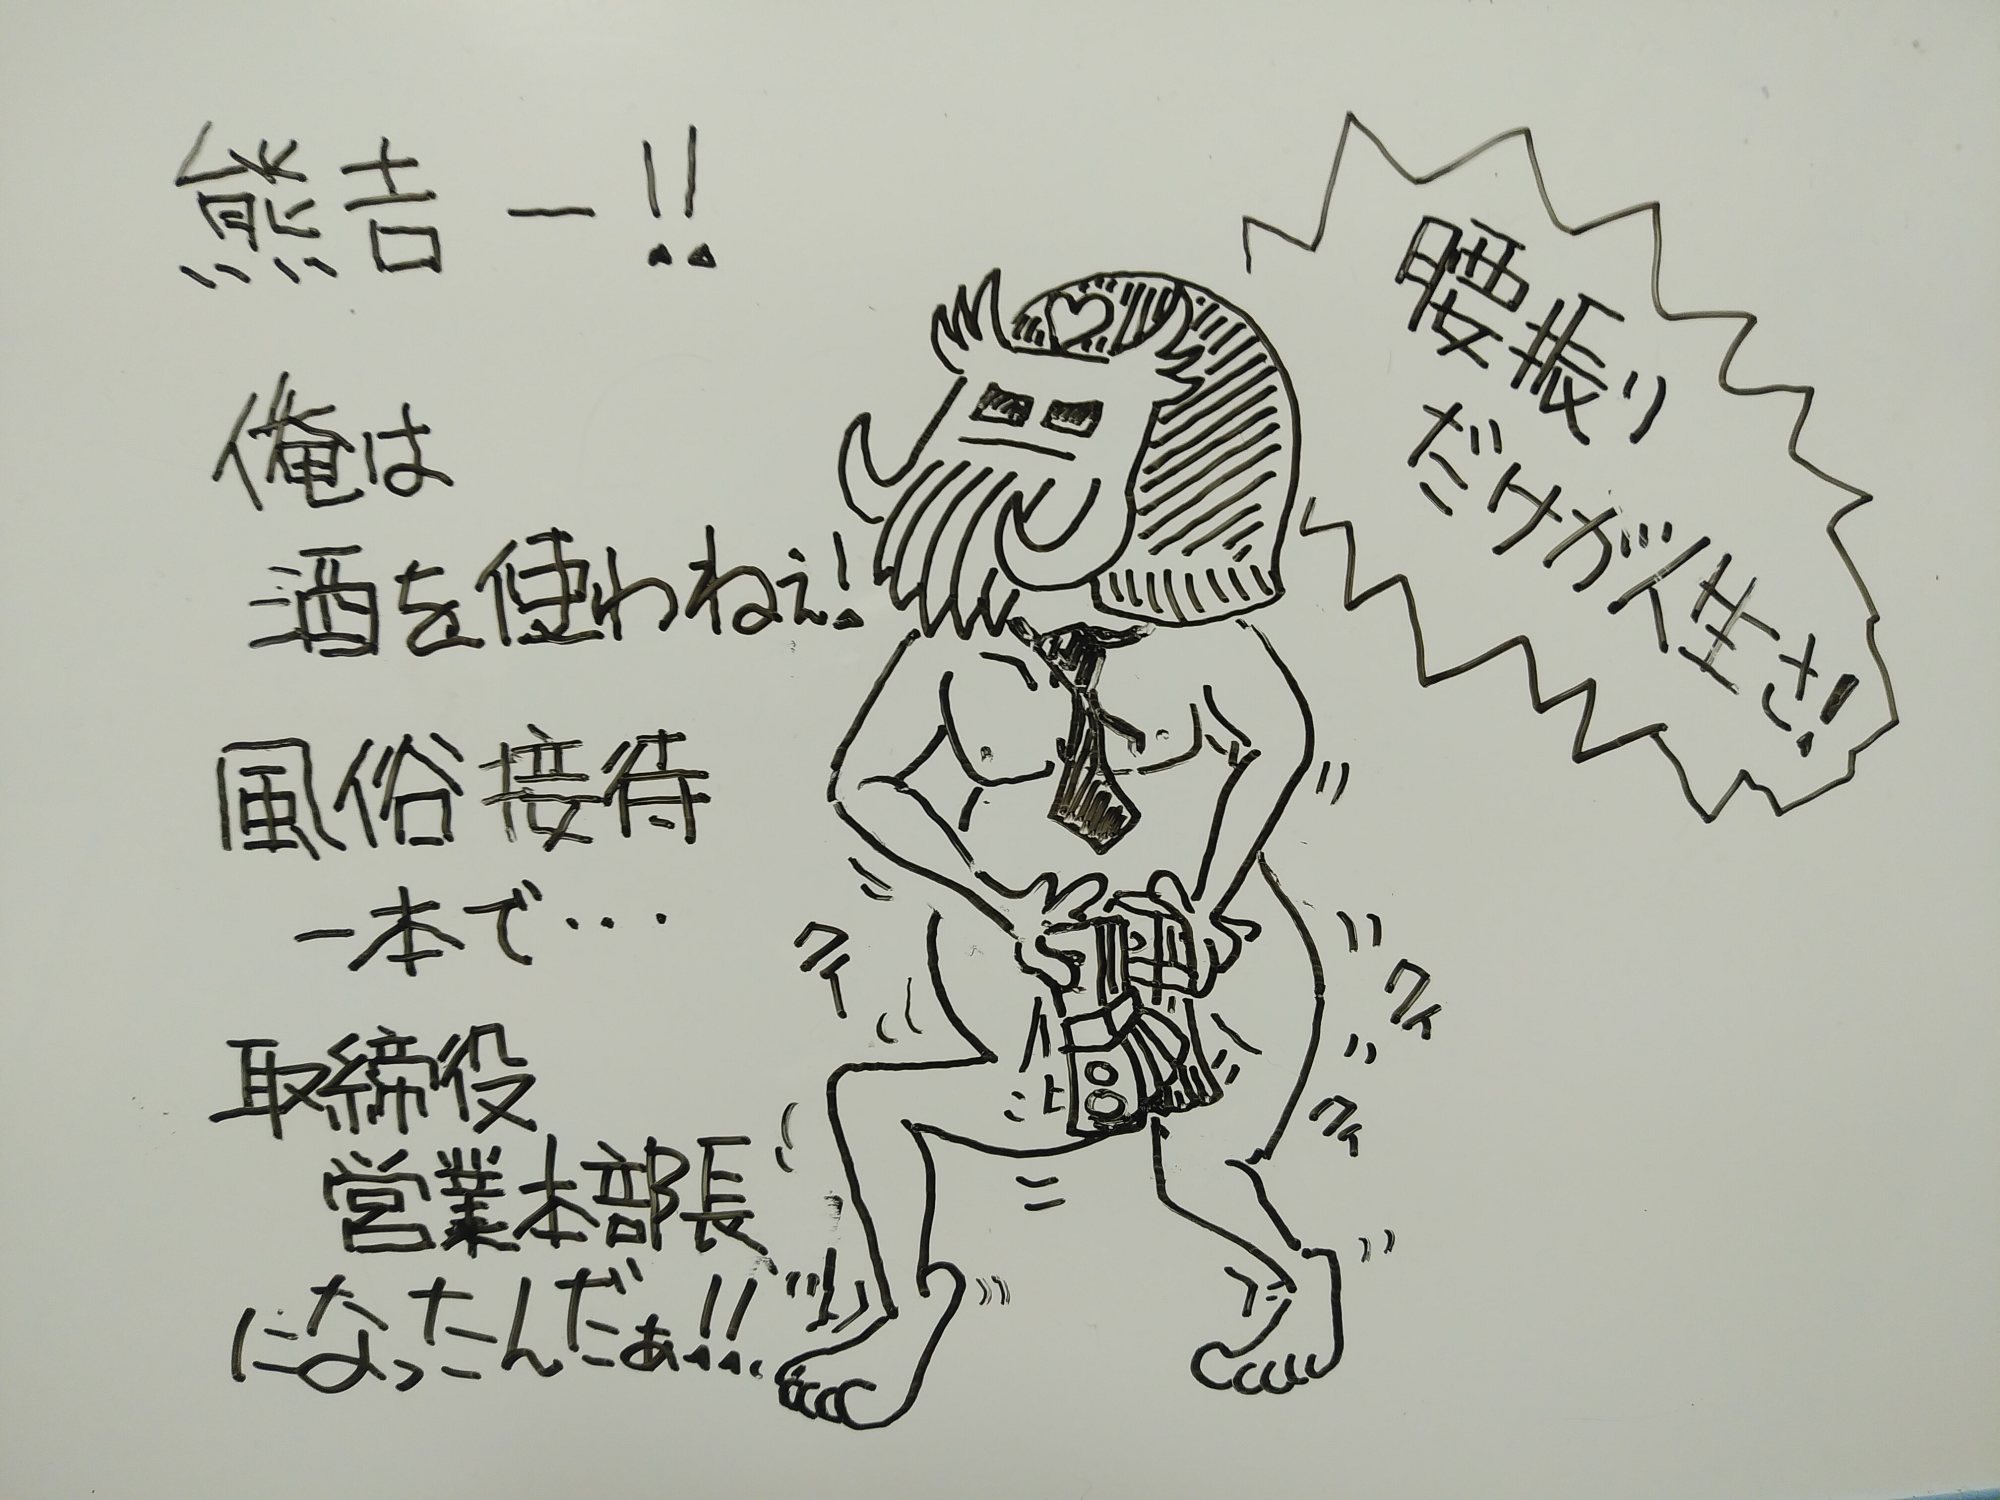 熊吉ー!!
俺は
酒を使わねぇ!
風俗接待
一本で…
取締役
営業本部長
になったんだぁ!!
腰振り
だけが人生さ!
クイ
クイ
クイ